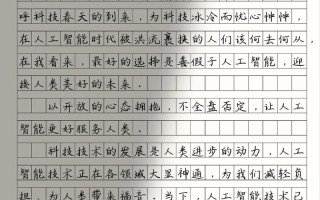 呼科技春天的到来，为科技冰冷而忧心忡忡，
在人工智能时代被洪流裹挟的人们该何去何从，
在我看来，最好的选择是善假于人工智能，迎
接人类美好的未来．
以开放的心态拥抱，不全盘否定，让人工
智能更好服务人类．
科技技术的发展是人类进步的动力，人工
智能技术正在各领域大显神通，为我们减轻负
担，为人类带来福音．当下，人工智能技术已